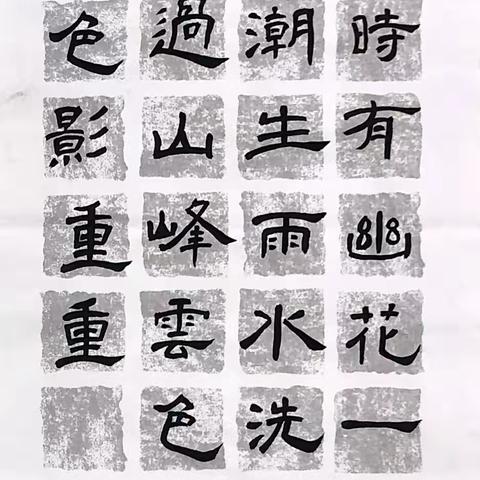 時有幽花一
潮生雨水洗
過山峰雲色
色影重重